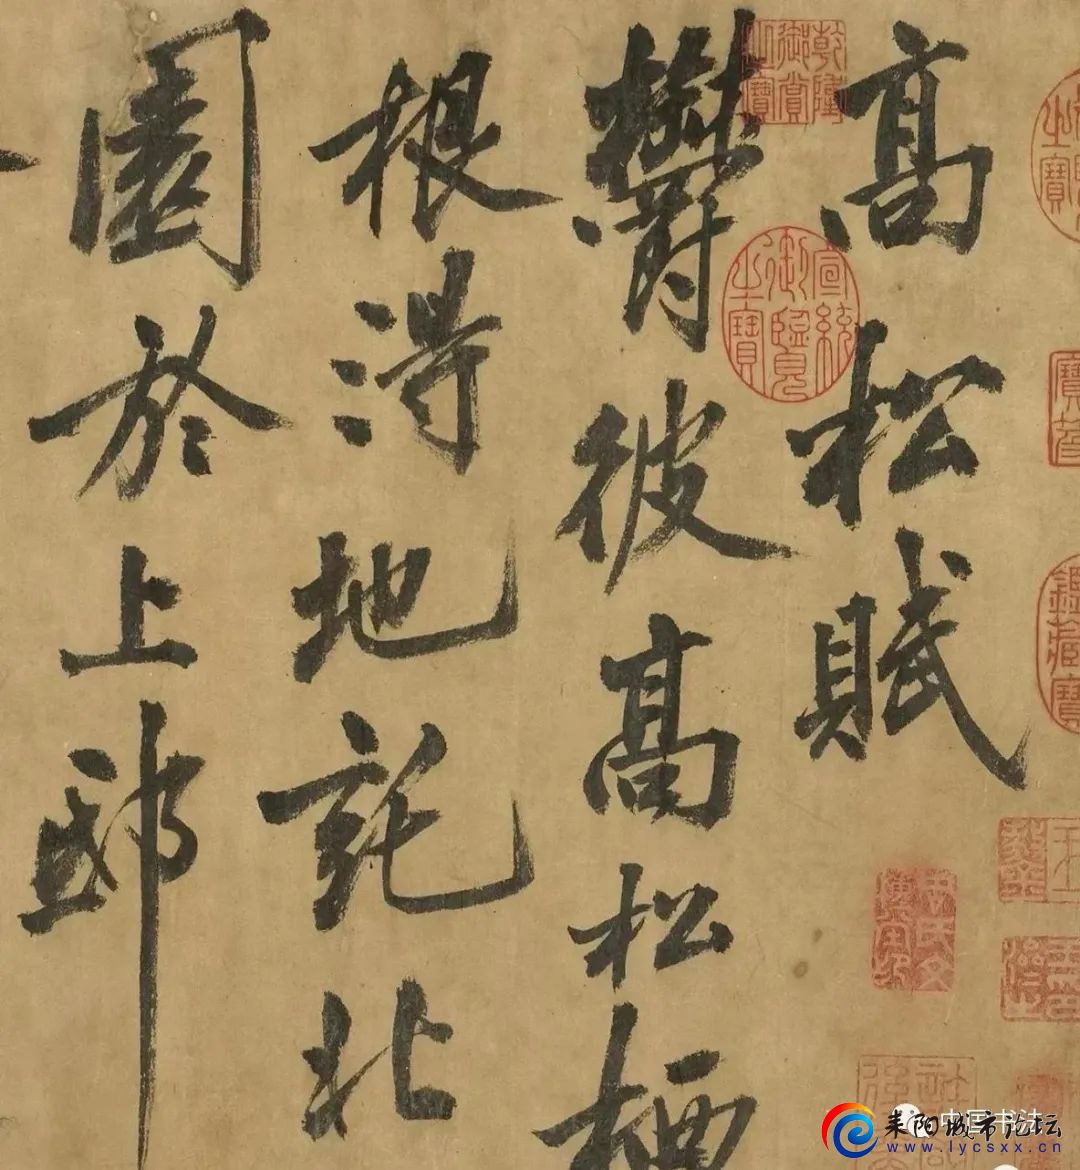 高松賦
鬱彼高松栖
根得地託北
園於上邸
乾隆
御賞
之寶
宣統
御覽
之寶
之寶
鑑藏寶
中国书法
耒阳城市论坛
www.lycsxx.cn